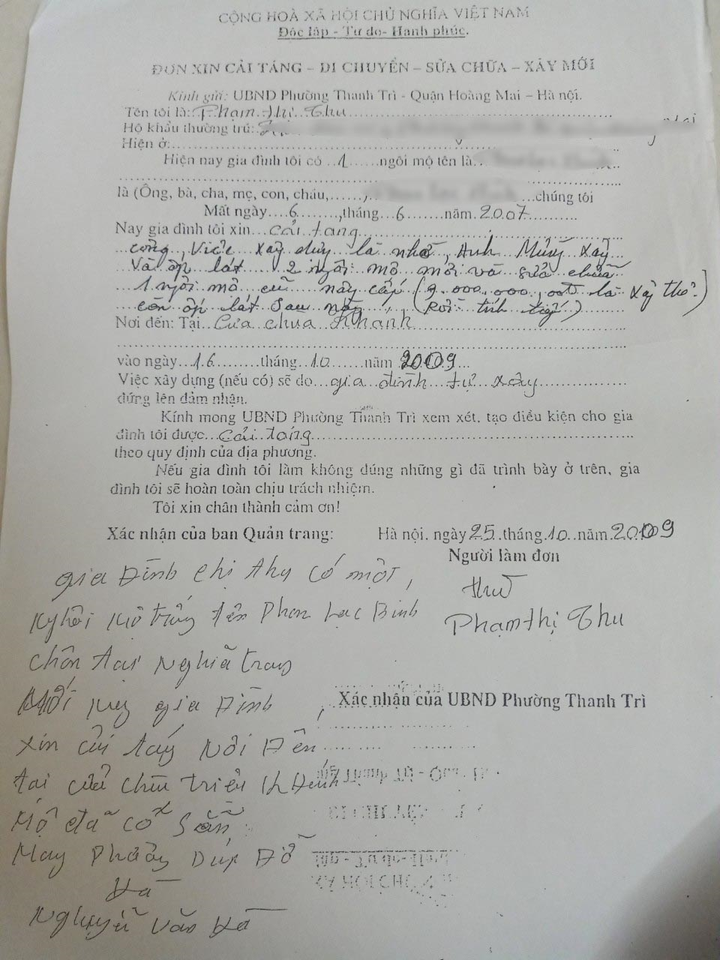 CỘNG HOÀ XÃ HỘI CHỦ NGHĨA VIỆT NAM
Độc lập - Tự do- Hạnh phúc.
ĐƠN XIN CẢI TÁNG – DI CHUYỂN – SỬA CHỮA – XÂY MỚI
Kính gửi: UBND Phường Thanh Trì - Quận Hoàng Mai – Hà nội.
Tên tôi là: Phạm Thị Thu
Hộ khẩu thường trú:
Hiện ở:
Hiện nay gia đình tôi có ..1.. ngôi mộ tên là
là (Ông, bà, cha, mẹ, con, cháu,......) ...chúng tôi
Mất ngày...6...,tháng...6...năm.2007
Nay gia đình tôi xin...cải táng
công, Việc xây dựng là nhờ, Anh xây
Và ốp lát 2 ngôi mộ mới và sửa chữa
1 ngôi mộ cũ này cấp (9.000.000, là xây thô.)
còn ốp lát sau này, (Rồi tính tiếp)
Nơi đến: Tại..Cửa chùa
vào ngày...16...tháng..10...năm 2009...
Việc xây dựng (nếu có) sẽ do...gia đình tự xây
đứng lên đảm nhận.
Kính mong UBND Phường Thanh Trì xem xét, tạo điều kiện cho gia
đình tôi được...cải táng
theo quy định của địa phương.
Nếu gia đình tôi làm không đúng những gì đã trình bày ở trên, gia
đình tôi sẽ hoàn toàn chịu trách nhiệm.
Tôi xin chân thành cảm ơn!
Xác nhận của ban Quản trang: Hà nội. ngày 25.tháng.10..năm.2009
Người làm đơn
Thu
Phạm thị Thu
gia Đình chị thu có một,
tên Phan Lạc Bình
chôn tại Nghĩa trang
nay gia Đình
xin cải táng Nơi Đến
tại cửa chùa triều
Mộ đã có sẵn
Phường Dúp Đỡ
Hà
Nguyễn Văn Hà
Xác nhận của UBND Phường Thanh Trì